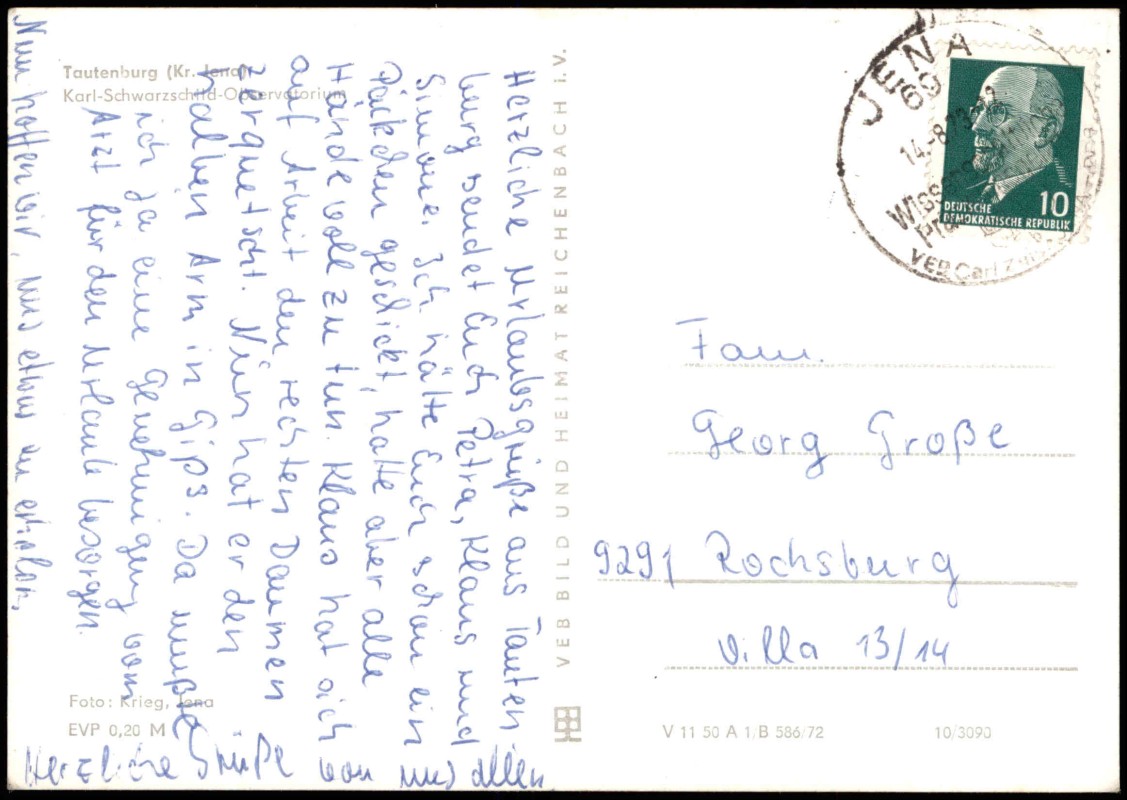 Tautenburg (Kr. Jena)
Karl-Schwarzschild-Observatorium
Herzliche Urlaubsgrüße aus Tauten
burg sendet Euch Petra, Klaus und
Simone. Ich hätte Euch schon ein
Päckchen geschickt, hatte aber alle
Hände voll zu tun. Klaus hat sich
auf Arbeit den rechten Daumen
zerquetscht. Nun hat er den
halben Arm in Gips. Da mußte
ich ja eine Genehmigung vom
Arzt für den Urlaub besorgen.
Nun hoffen wir, uns etwas zu erholen,
Herzliche Grüße von uns allen
Foto: Krieg, Jena
EVP 0,20 M
VEB BILD UND HEIMAT REICHENBACH I. V.
JENA
69
14.-8.73
VEB Carl
10
DEUTSCHE
DEMOKRATISCHE REPUBLIK
Fam.
Georg Große
9291 Rochsburg
Villa 13/14
V 11 50 A 1/B 586/72
10/3090